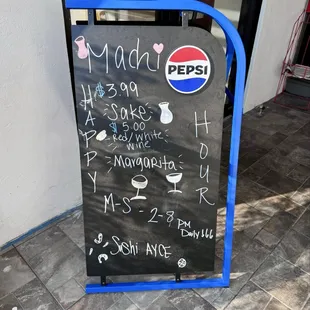 Machi
PEPSI
HAPPY
HOUR
$3.99
Sake
$5.00
red/white
wine
Margarita
M-S - 2-8 PM
Daily
Sushi AYCE